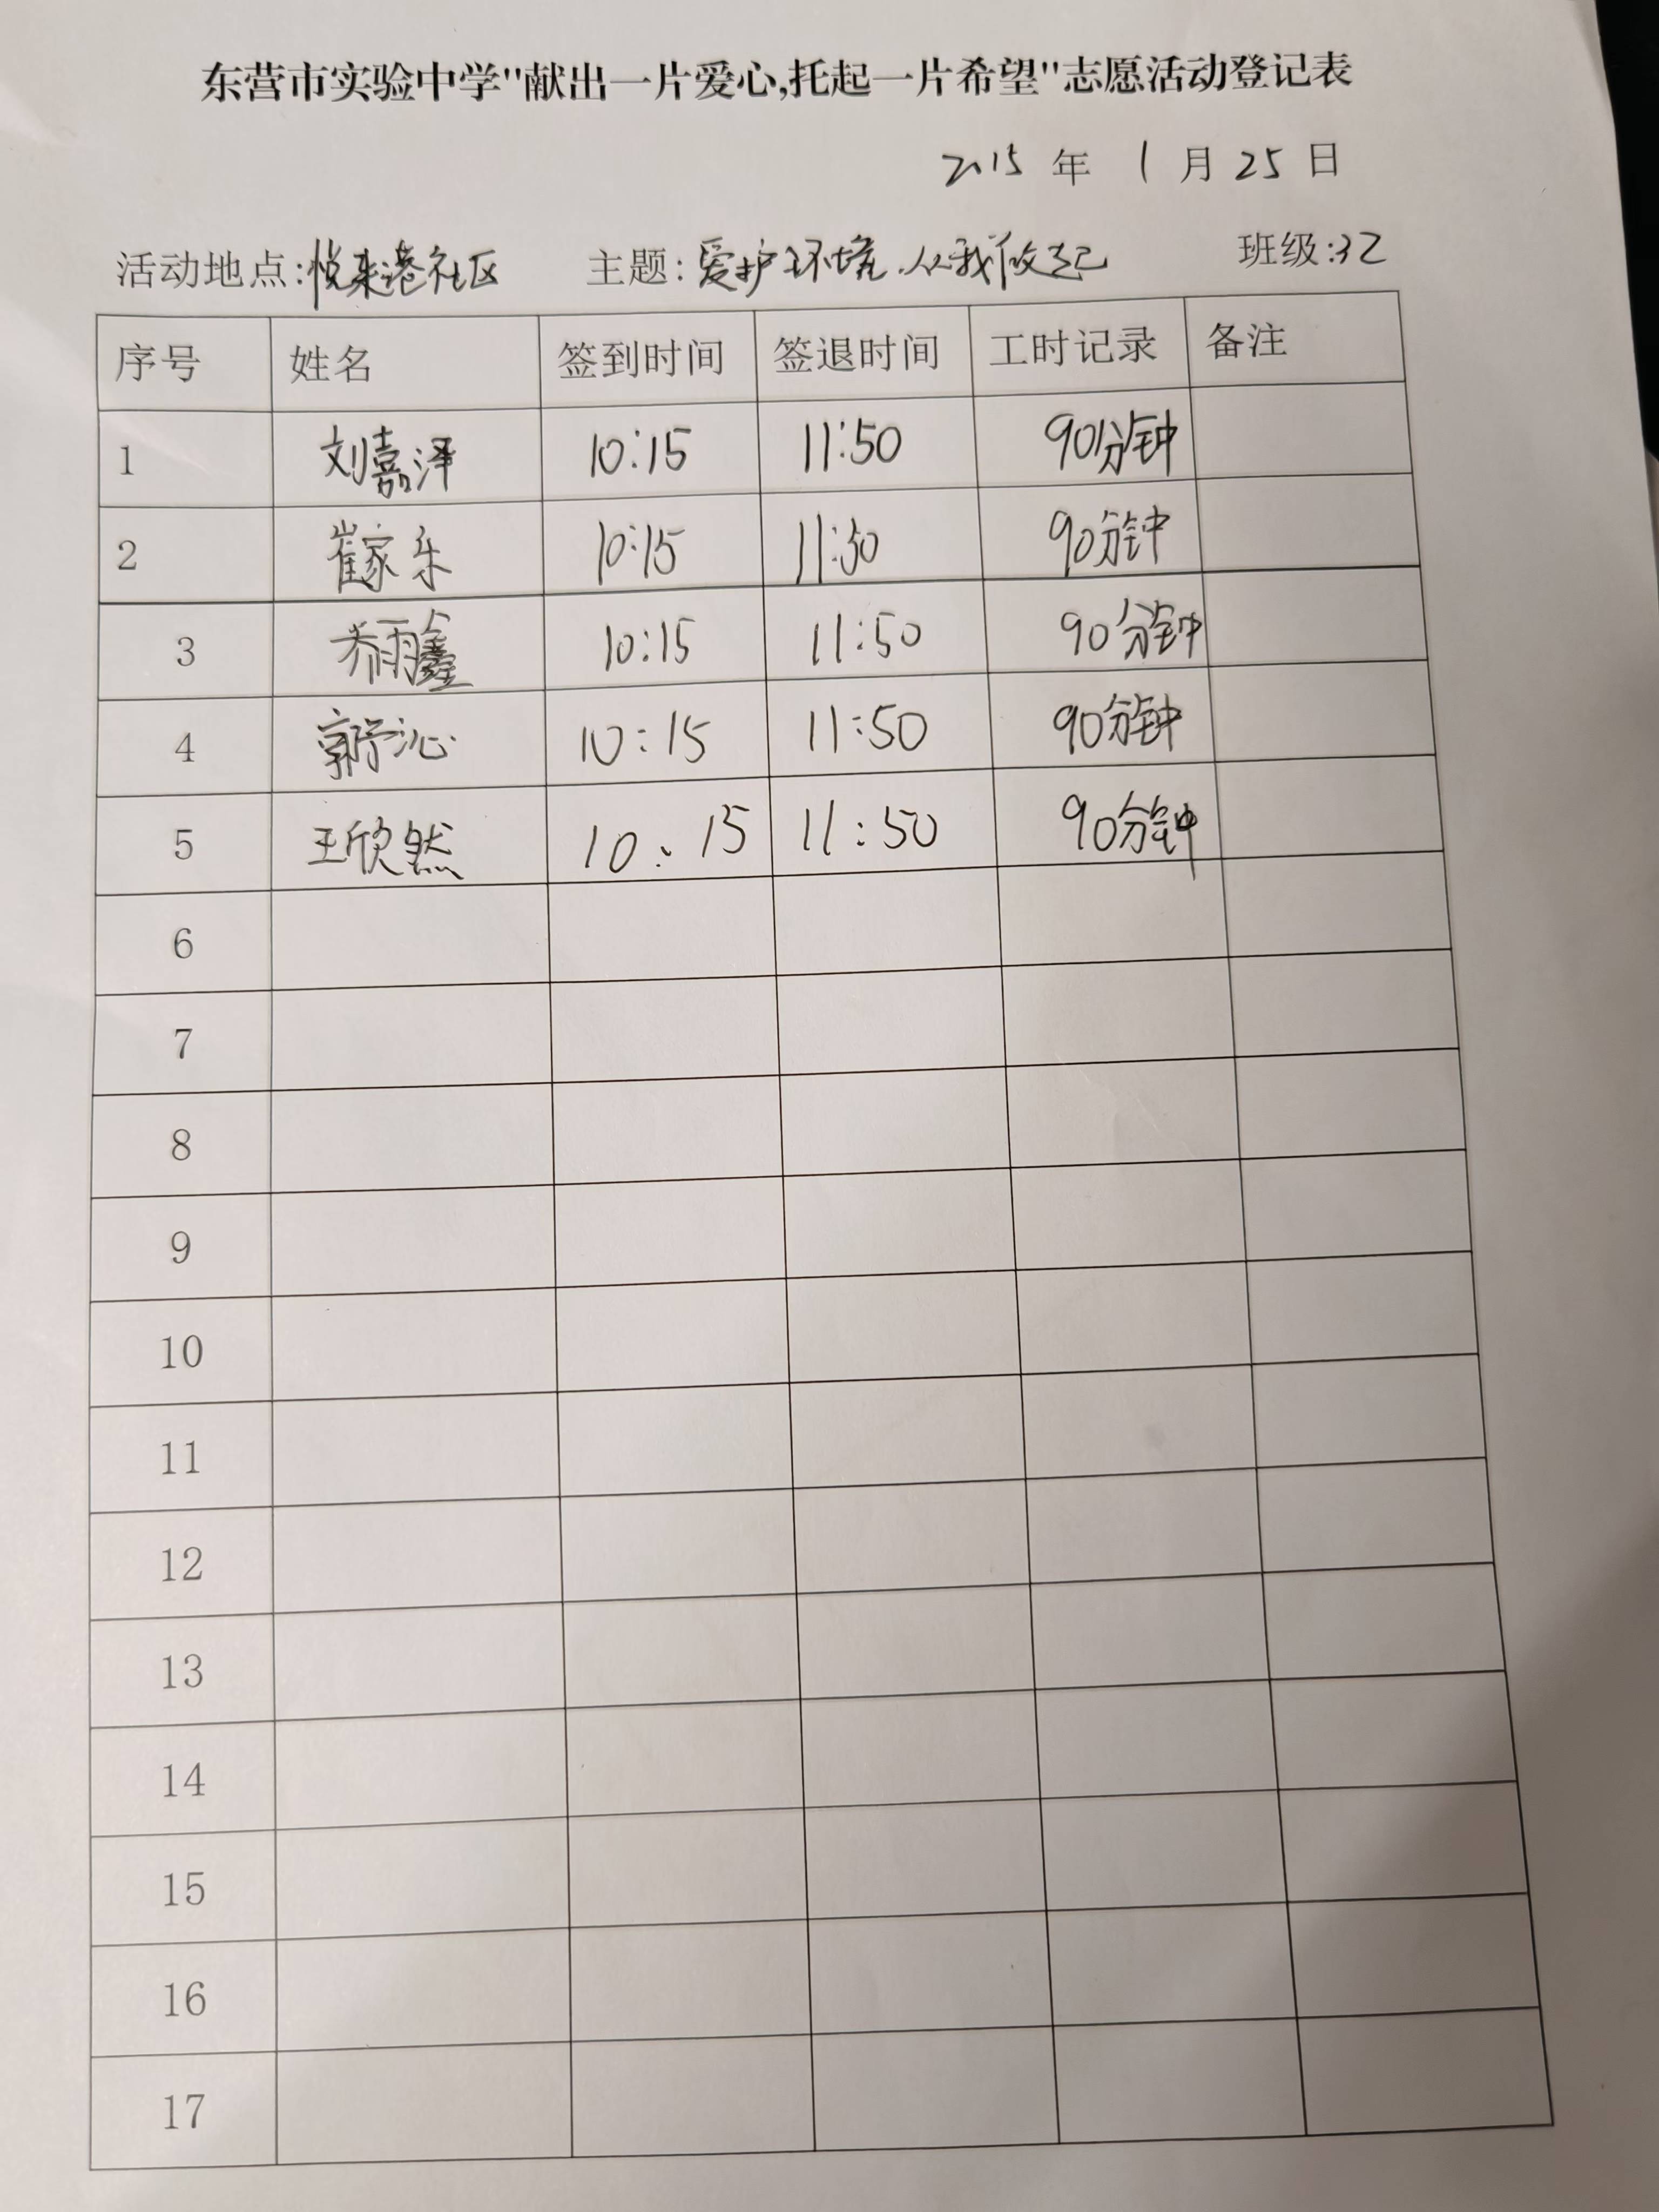 东营市实验中学"献出一片爱心,托起一片希望"志愿活动登记表
2015 年 1 月 25 日
活动地点:悦来港社区 主题:爱护环境.从我做起 班级:32
序号 姓名 签到时间 签退时间 工时记录 备注
1 刘嘉泽 10:15 11:50 90分钟
2 崔家乐 10:15 11:50 90分钟
3 乔雨鑫 10:15 11:50 90分钟
4 郭予沁 10:15 11:50 90分钟
5 王欣然 10:15 11:50 90分钟
6
7
8
9
10
11
12
13
14
15
16
17